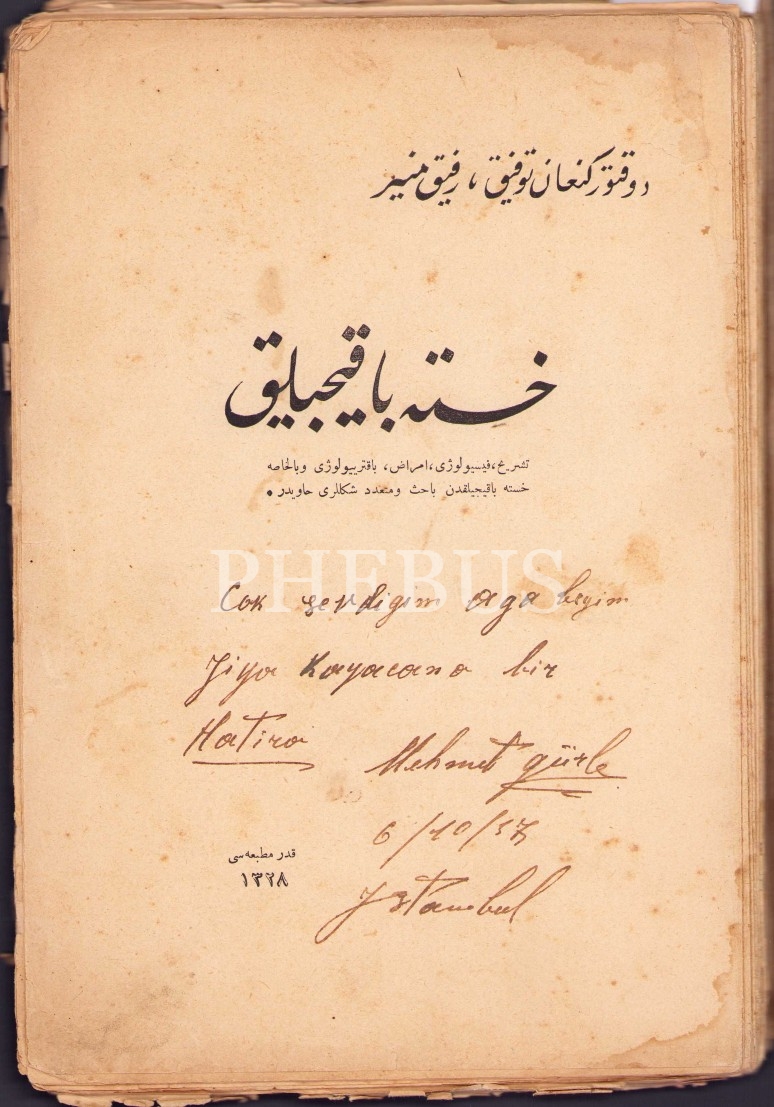 دوقتور كنعان توفيق ، رفيق منير
خسته باقيجيلق
تشريح، فيسيولوژى، امراض، باقتريولوژى وبالخاصه
خسته باقيجيلقدن باحث ومتعدد شكللرى حاويدر .
PHEBUS
Cok sevdigim aga begim
Ziya Kayacana bir
Hatira
Mehmet gürle
6/10/37
قدر مطبعه سى
١٣٢٨
Istanbul